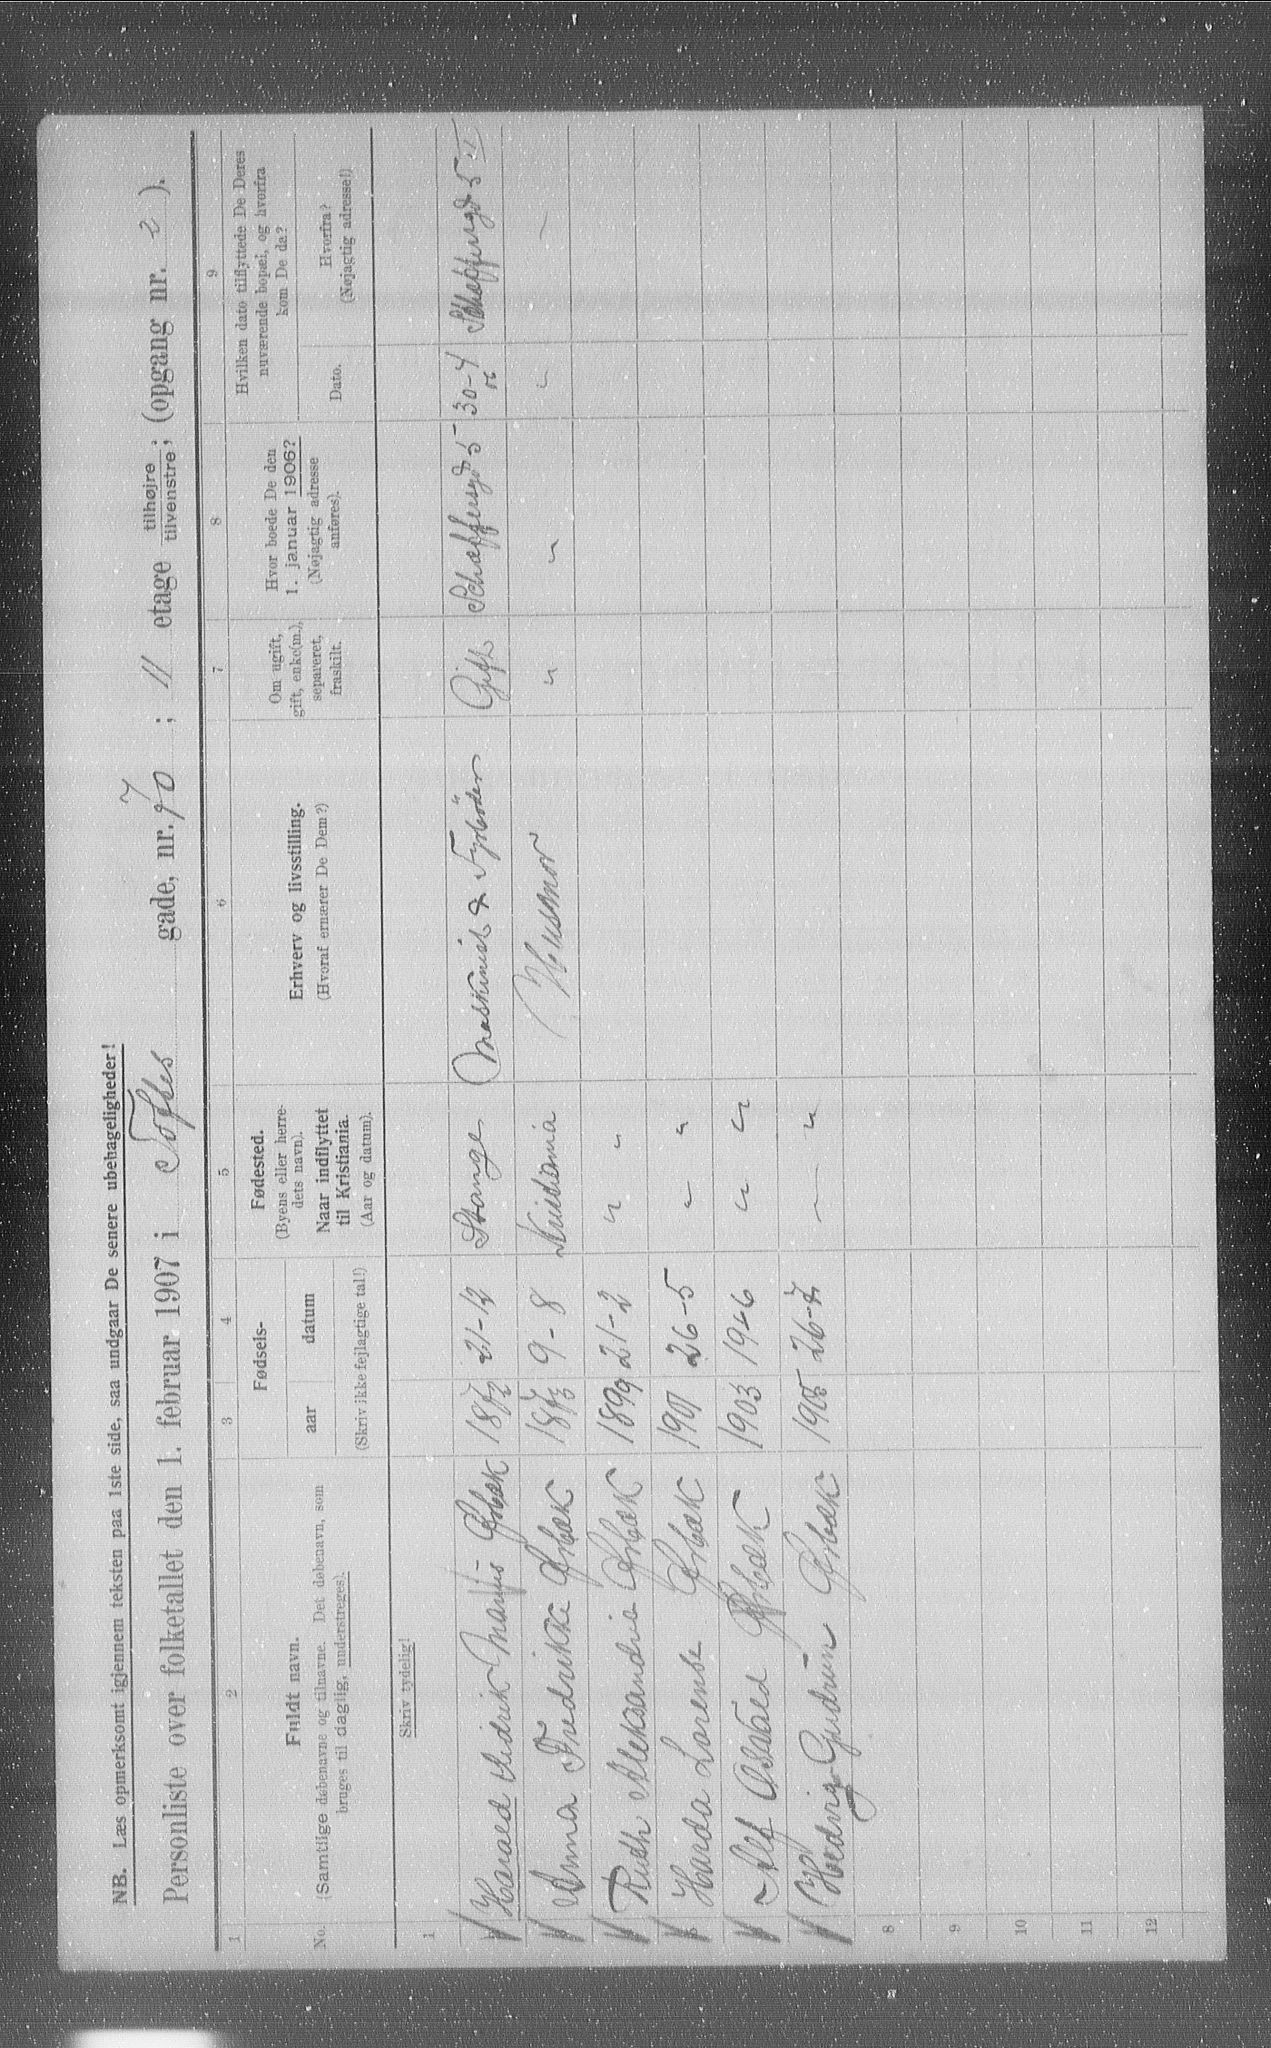 NB. Læs opmerksomt igjennem teksten paa 1ste side, saa undgaar De senere ubehageligheder!
Personliste over folketallet den 1. februar 1907 i Toftes gade, nr. 70 ; II etage tilhøjre tilvenstre; (opgang nr. 2).
1 2 3 4 5 6 7 8 9
No.
Fuldt navn.
(Samtlige døbenavne og tilnavne. Det døbenavn, som
bruges til daglig, understreges).
Fødsels-
aar datum
(Skriv ikke fejlagtige tal!)
Fødested.
(Byens eller herre-
dets navn).
Naar indflyttet
til Kristiania.
(Aar og datum).
Erhverv og livsstilling.
(Hvoraf ernærer De Dem?)
Om ugift,
gift, enke(m.),
separeret,
fraskilt.
Hvor boede De den
1. januar 1906?
(Nøjagtig adresse
anføres).
Hvilken dato tilflyttede De Deres
nuværende bopæl, og hvorfra
kom De da?
Dato.
Hvorfra?
(Nøjagtig adresse!)
Skriv tydelig!
1
Harald Didrik Ørbæk 1872 21-12 Stange Maskinist & Fyrbøder Gift Schæffersgd 5 30-4 06 Schæffersgd 5 II
Anna Fredrikke Ørbæk 1873 9-8 Kristiania Husmor " " " "
Ruth Aleksandria Ørbæk 1899 21-2 " "
Harda Lorense Ørbæk 1901 26-5 " "
Alf Osvald Ørbæk 1903 19-6 " "
Hedvig Gudrun Ørbæk 1905 26-7 " "
8
9
10
11
12